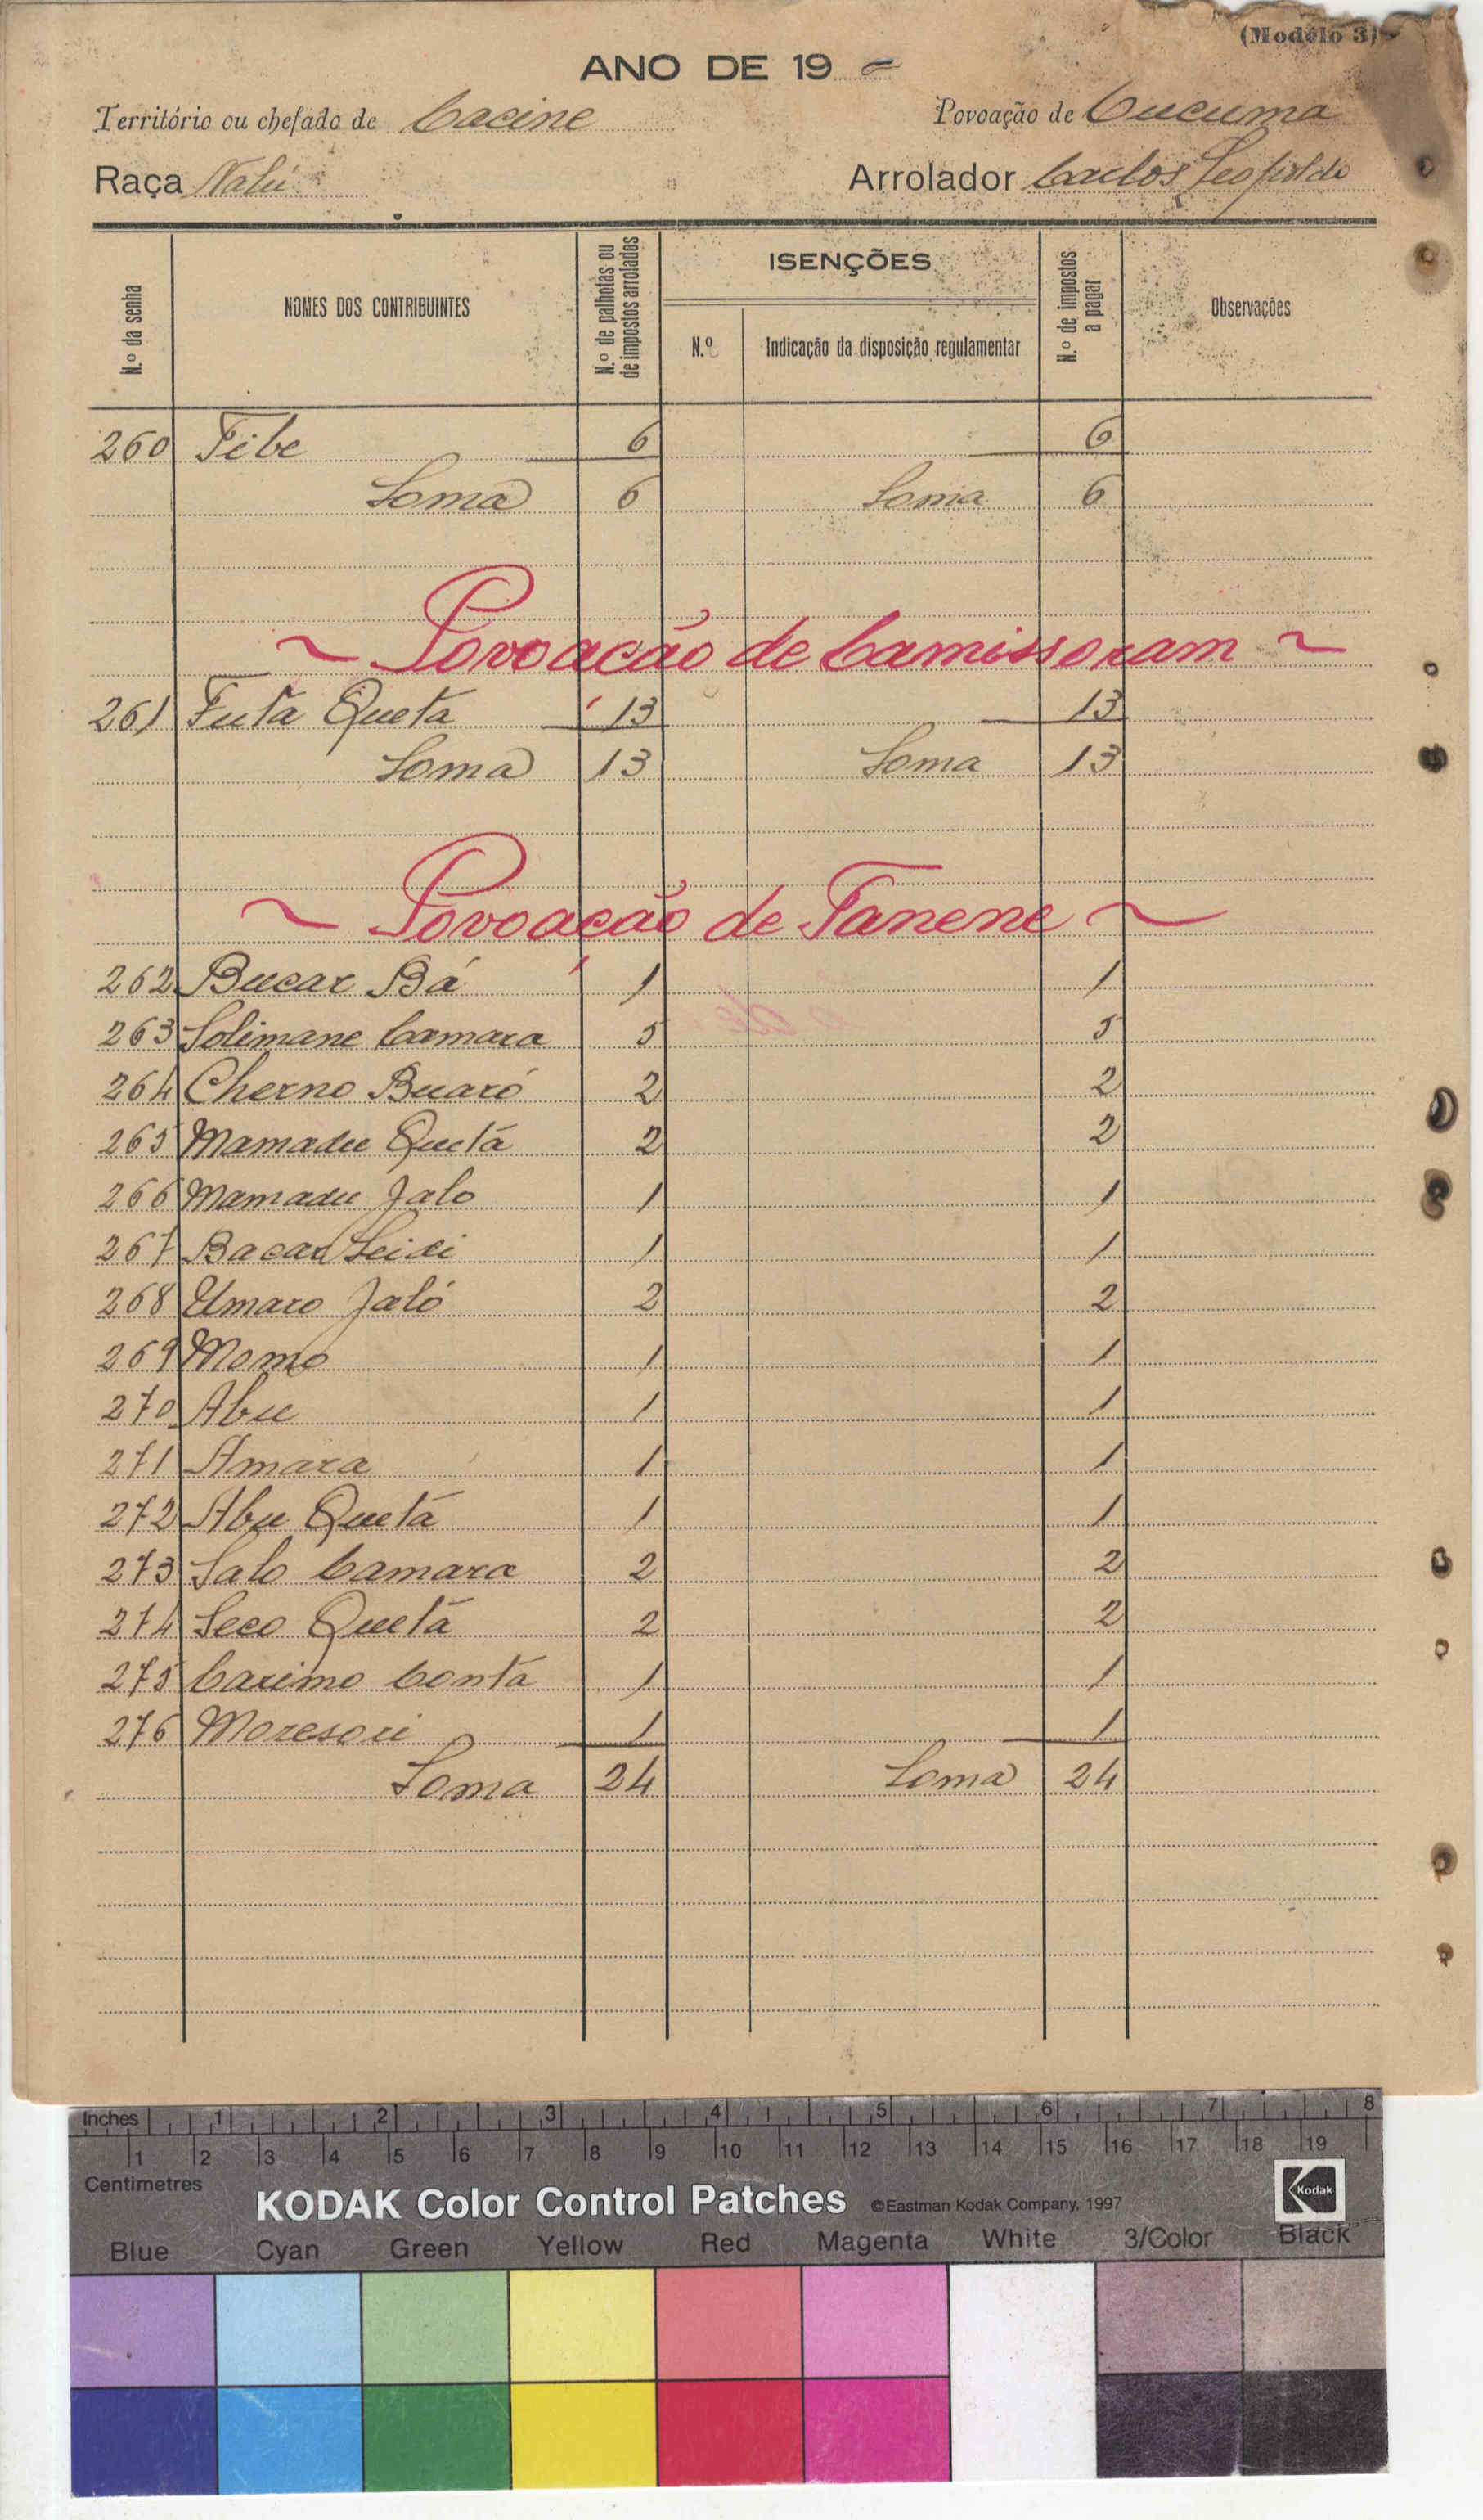 (Modêlo 3)
ANO DE 19
Território ou chefado de Cacine Povoação de Cucuma
Raça Nalú Arrolador Carlos Leopoldo
N.º da senha NOMES DOS CONTRIBUINTES N.º de palhotas ou de impostos arrolados ISENÇÕES N.º de impostos a pagar Observações
N.º Indicação da disposição regulamentar
260 Fibe 6 6
Soma 6 Soma 6
~ Povoacão de Camissoram ~
261 Futa Queta 13 13
Soma 13 Soma 13
~ Povoação de Tanene ~
262 Bucar Bá 1 1
263 Solimane Camara 5 5
264 Cherno Buaró 2 2
265 Mamadu Quetá 2 2
266 Mamadu Jalo 1 1
267 Bacar Seidi 1 1
268 Umaro Jaló 2 2
269 Momo 1 1
270 Abu 1 1
271 Amara 1 1
272 Abu Quetá 1 1
273 Salo Camara 2 2
274 Seco Quetá 2 2
275 Carimo Contá 1 1
276 Moresori 1 1
Soma 24 Soma 24
Inches 1 2 3 4 5 6 7 8
1 2 3 4 5 6 7 8 9 10 11 12 13 14 15 16 17 18 19
Centimetres
KODAK Color Control Patches ©Eastman Kodak Company, 1997 Kodak
Blue Cyan Green Yellow Red Magenta White 3/Color Black